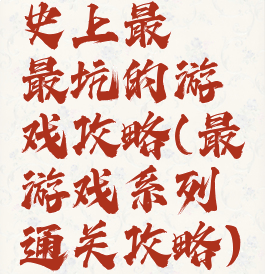 史上最
最坑的游
戏攻略(最
游戏系列
通关攻略)